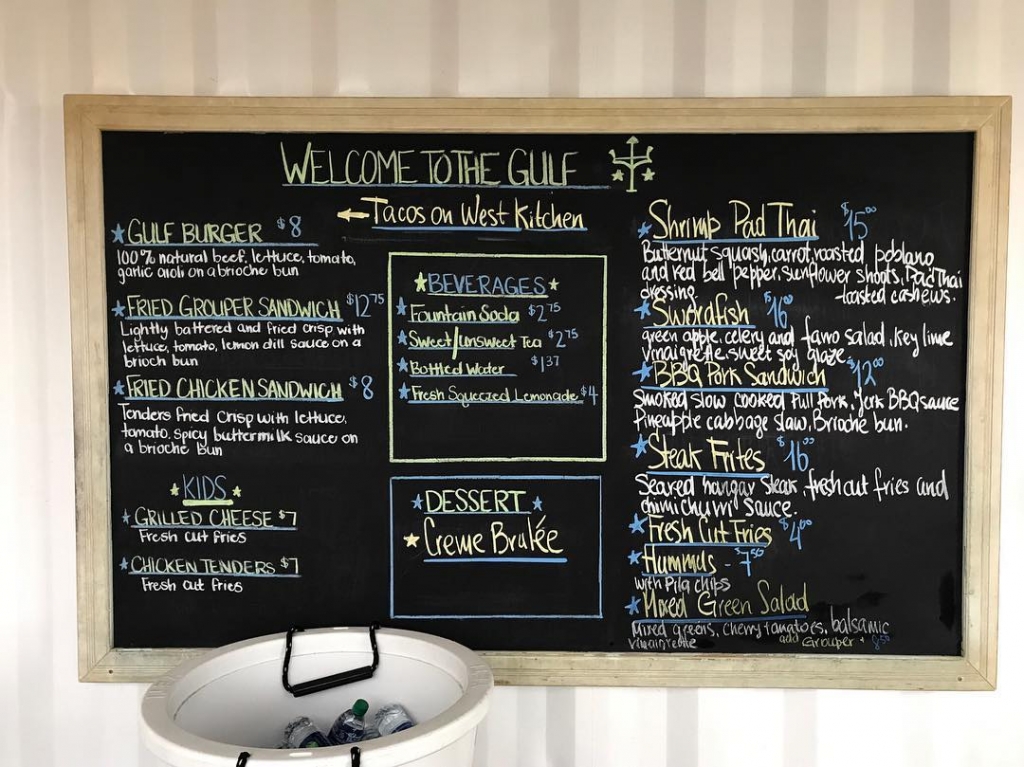 WELCOME TO THE GULF
←Tacos on West Kitchen
GULF BURGER $8
100% natural beef, lettuce, tomato,
garlic aioli on a brioche bun
FRIED GROUPER SANDWICH $12 75
Lightly battered and fried crisp with
lettuce, tomato, lemon dill sauce on a
brioch bun
FRIED CHICKEN SANDWICH $8
Tenders fried crisp with lettuce,
tomato, spicy buttermilk sauce on
a brioche bun
★KIDS★
GRILLED CHEESE $7
Fresh cut fries
CHICKEN TENDERS $7
Fresh cut fries
★BEVERAGES★
Fountain Soda $2 75
Sweet/unsweet Tea $2 75
Bottled Water $1 37
Fresh Squeezed Lemonade $4
★DESSERT★
★Creme Brulée
Shrimp Pad Thai $15 00
Butternut squash, carrot, roasted poblano
and red bell pepper, sunflower shoots, Pad Thai
dressing. toasted cashews.
Swordfish $16 00
green apple, celery and farro salad, key lime
vinaigrette, sweet soy glaze
BBQ Pork Sandwich $12 00
Smoked slow cooked Pull Pork, Jerk BBQ sauce
Pineapple cabbage slaw, Brioche bun.
Steak Frites $16 00
Seared hangar steak, fresh cut fries and
chimichurri sauce.
Fresh Cut Fries $4 00
Hummus - $7 50
with Pita chips
Mixed Green Salad
Mixed greens, cherry tomatoes, balsamic
vinaigrette add Grouper + 8.50